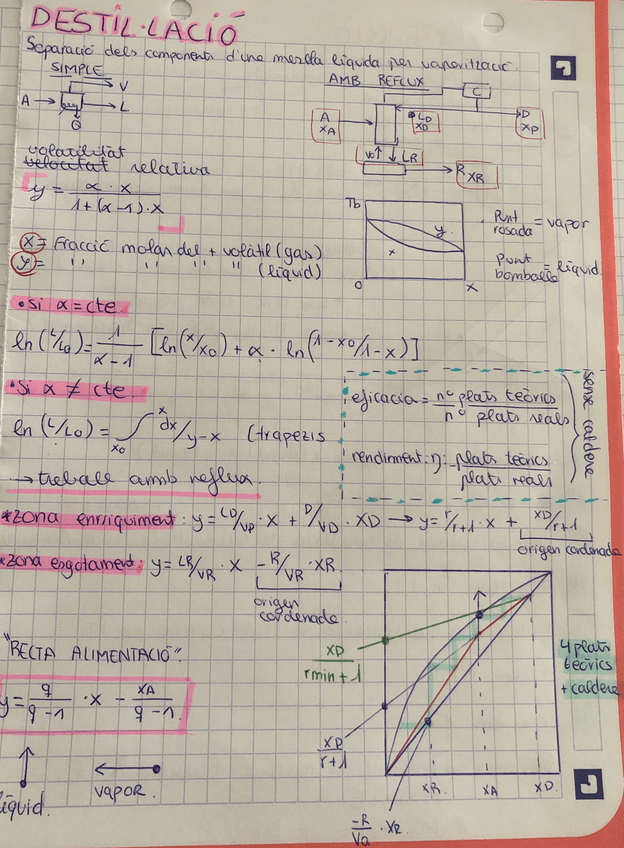 DESTIL·LACIÓ
Separació dels components d'una mescla líquida per vaporització.
SIMPLE
A → V
→ L
Q
AMB REFLUX
C
A
XA
LD
XD
D
XD
V↑ ↓ LR
R XR
volatilitat relativa
y = α · x / 1+(α-1)·x
Tb
y
x
O
X
· Punt rosada = vapor
Punt bombolla = líquid
x = Fracció molar del + volàtil (gas)
y = '' '' '' '' (líquid)
• si α = cte.
ln (L/L0) = 1/α-1 [ln(x/x0) + α · ln(1-x0/1-x)]
• si α ≠ cte.
ln (L/L0) = ∫ x x0 dx/y-x (trapezis
eficàcia = nº plats teòrics / nº plats reals
rendiment: η = plats teòrics / plats reals
sense caldera
→ treball amb reflux.
*zona enriquiment: y = LD/VD · x + D/VD · XD → y = r/r+1 · x + XD/r+1
origen cordenada
*zona esgotament: y = LR/VR · x - R/VR · XR
origen cordenada
"RECTA ALIMENTACIÓ":
y = q/q-1 · x - XA/q-1
líquid.
vapor.
XD / rmin + 1
XD / r+1
-R/Va · XR
XR
XA
XD
4 plats teòrics + caldera